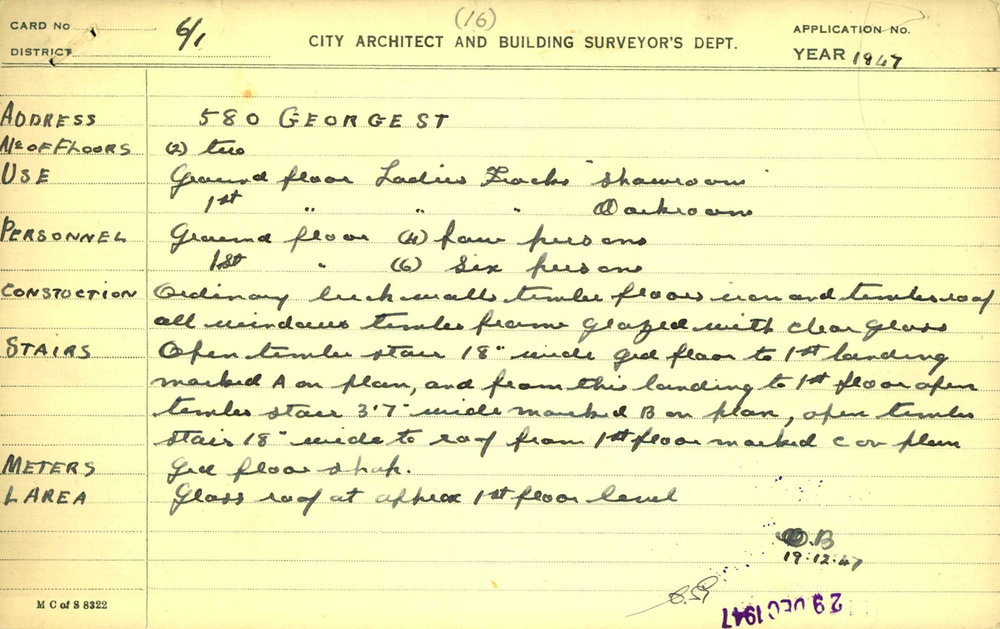 (16)
CARD No 6/1
DISTRICT
CITY ARCHITECT AND BUILDING SURVEYOR'S DEPT.
APPLICATION No.
YEAR 1947
ADDRESS 580 GEORGE ST
No OF FLOORS (2) two
USE Ground floor Ladies Frocks " showroom
1st " " " Workroom
PERSONNEL Ground floor (4) four persons
1st " (6) six persons
CONSTUCTION Ordinary brick walls timber floors iron and timber roof
all windows timber frame glazed with clear glass
STAIRS Open timber stair 18" wide grd floor to 1st landing
marked A on plan, and from this landing to 1st floor open
timber stair 3'7" wide marked B on plan, open timber
stair 18" wide to roof from 1st floor marked C on plan
METERS Grd floor shop.
L AREA Glass roof at approx 1st floor level
.B
19.12.47
29 DEC 1947
M C of S 8322